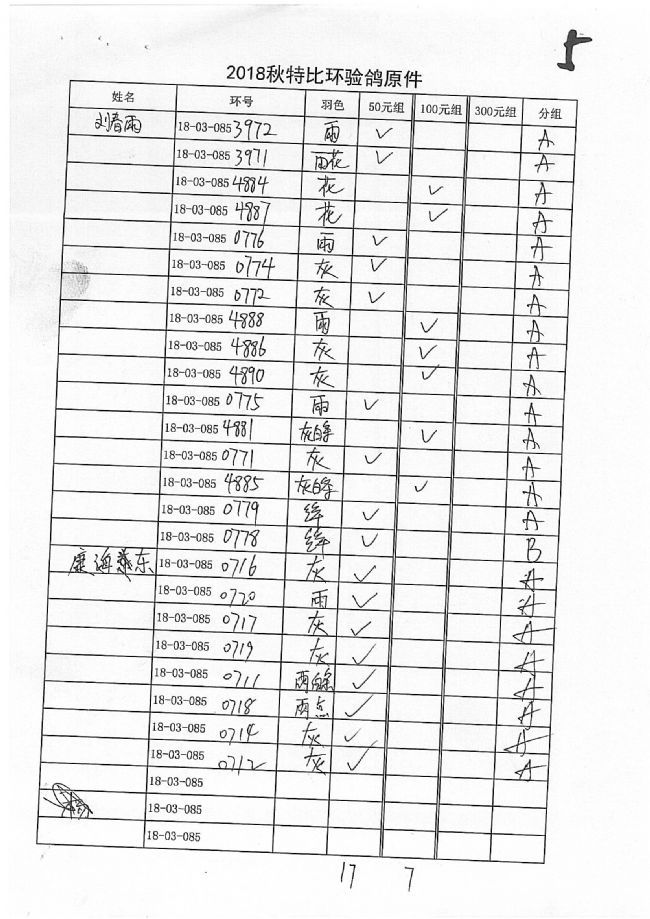 2018秋特比环验鸽原件
姓名 环号 羽色 50元组 100元组 300元组 分组
刘春雨 18-03-085 3972 雨 ✓ A
18-03-085 3971 雨花 ✓ A
18-03-085 4884 花 ✓ A
18-03-085 4887 花 ✓ A
18-03-085 0776 雨 ✓ A
18-03-085 0774 灰 ✓ A
18-03-085 0772 灰 ✓ A
18-03-085 4888 雨 ✓ A
18-03-085 4886 灰 ✓ A
18-03-085 4890 灰 ✓ A
18-03-085 0775 雨 ✓ A
18-03-085 4881 灰白条 ✓ A
18-03-085 0771 灰 ✓ A
18-03-085 4885 灰白条 ✓ A
18-03-085 0779 绛 ✓ A
18-03-085 0778 绛 ✓ B
18-03-085 0716 灰 ✓ A
18-03-085 0720 雨 ✓ A
18-03-085 0717 灰 ✓ A
18-03-085 0719 灰 ✓ A
18-03-085 0711 雨白条 ✓ A
18-03-085 0718 雨点 ✓ A
18-03-085 0714 灰 ✓ A
18-03-085 0712 灰 ✓ A
18-03-085
18-03-085
18-03-085
17 7